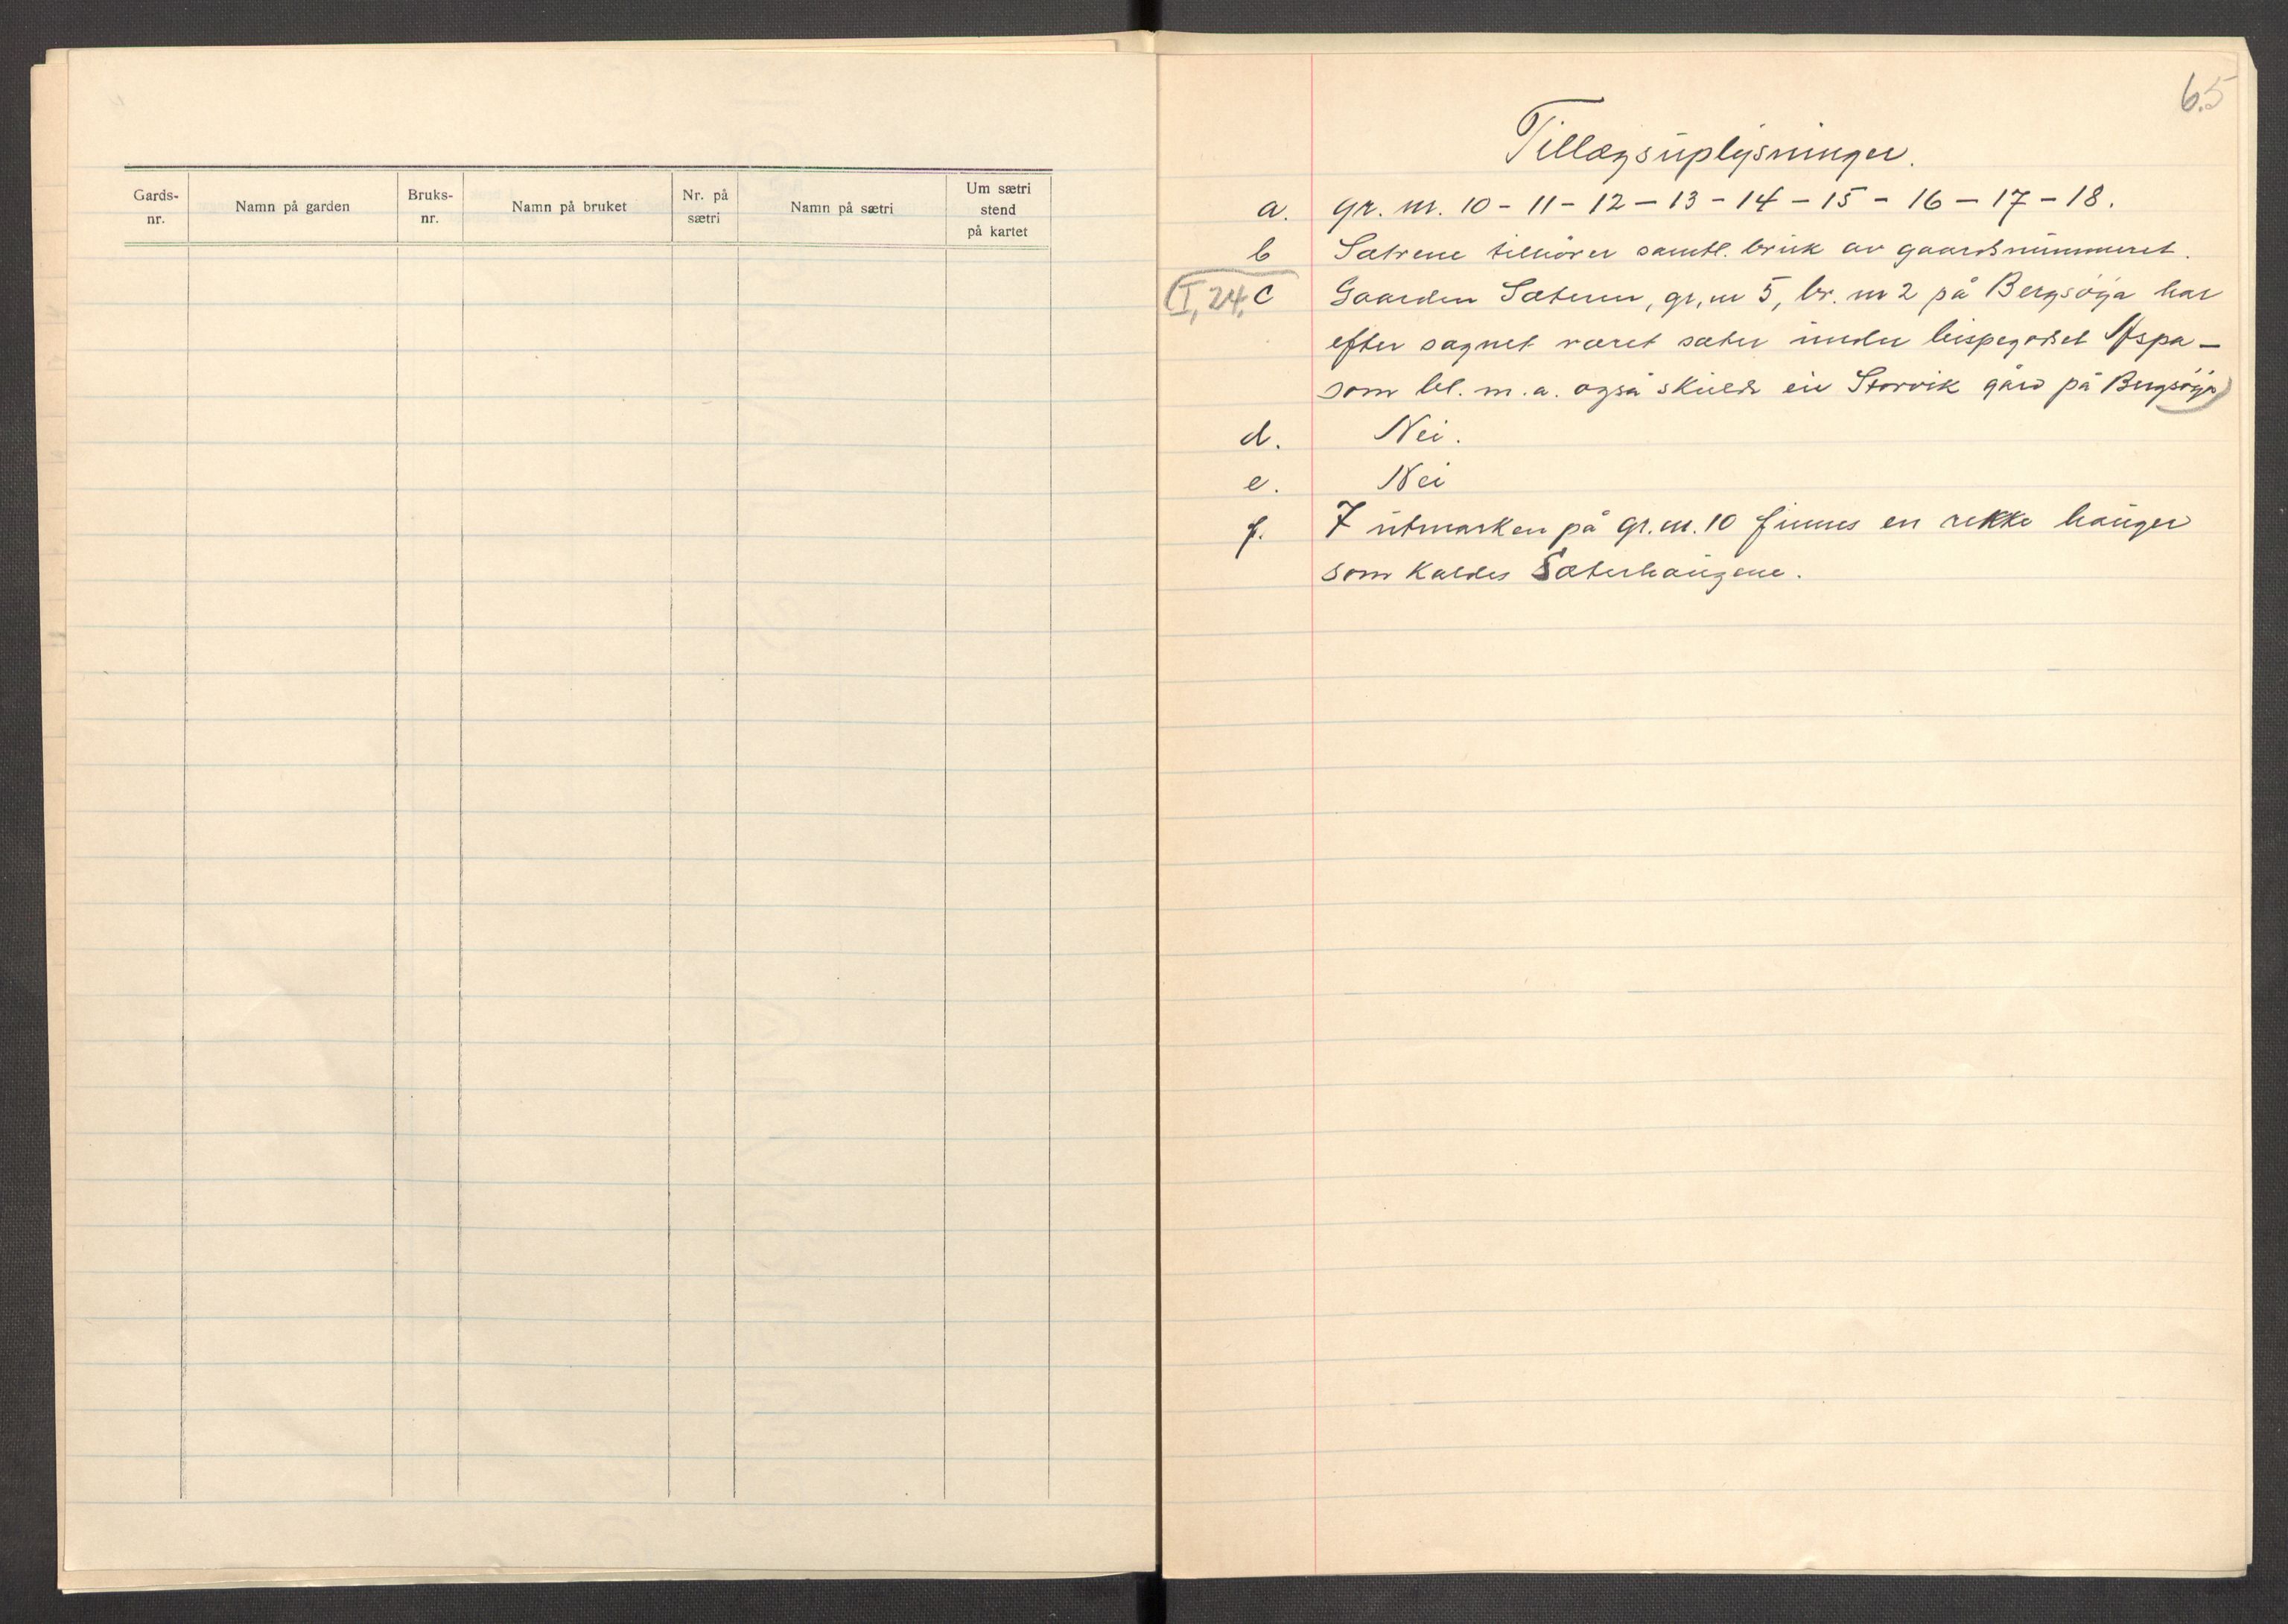 Gards-
nr.
Namn på garden
Bruks-
nr.
Namn på bruket
Nr. på
sætri
Namn på sætri
Um sætri
stend
på kartet
65
Tillægsuplysninger.
a. gr. nr. 10 - 11 - 12 - 13 - 14 - 15 - 16 - 17 - 18.
b Sætrene tilhører samtl. bruk av gaardsnummeret.
(I, 24, c Gaarden Sæteren, gr, nr 5, br. nr 2 på Bergsöya har
efter sagnet været sæter under bispegodset Aspa -
som bl. m. a. også skulde eie Storvik gård på Bergsöya)
d. Nei.
e. Nei
f. I utmarken på gr. nr. 10 finnes en rekke hauger
som kaldes Sæterhaugene.